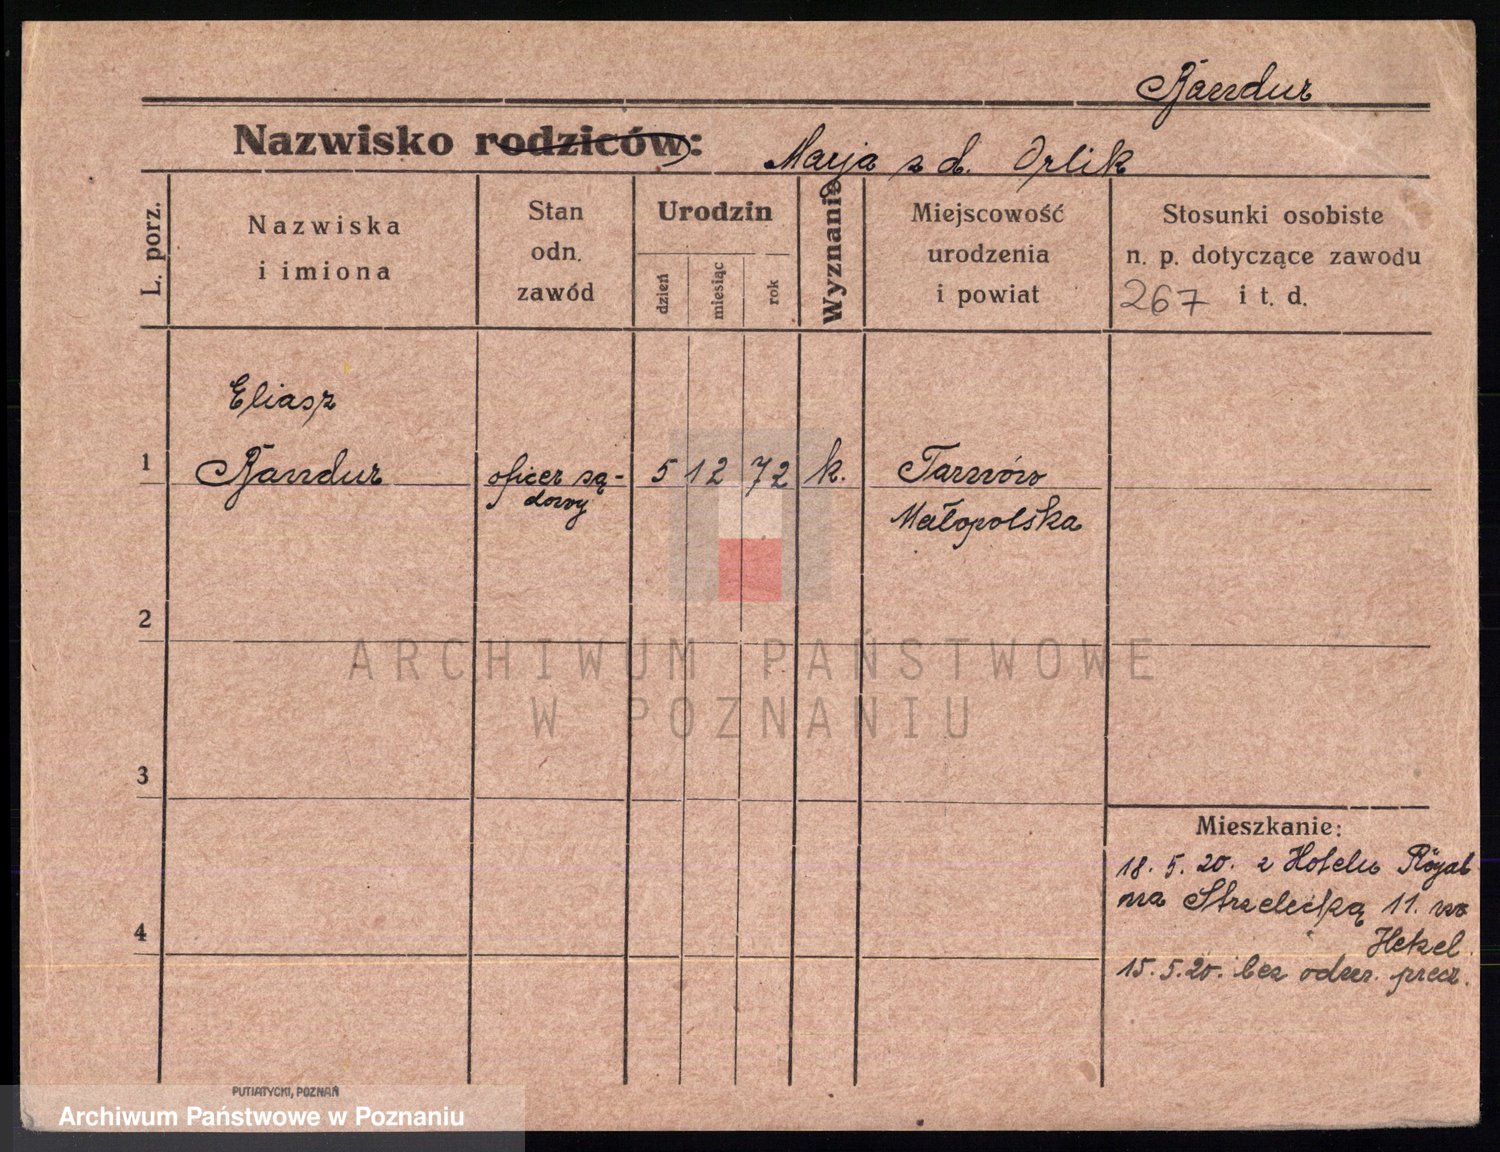 Bandur
Nazwisko rodziców:
Marja z d. Orlik
L. porz.
Nazwiska
i imiona
Stan
odn.
zawód
Urodzin
dzień
miesiąc
rok
Wyznanie
Miejscowość
urodzenia
i powiat
Stosunki osobiste
n. p. dotyczące zawodu
267 i t. d.
Eliasz
1 Bandur oficer są- 5 12 72 k. Tarnów
dowy Małopolska
2
ARCHIWUM PAŃSTWOWE
W POZNANIU
3
Mieszkanie:
18. 5. 20. z Hotelu Röyal
na Strzelecką 11. w
4
Hekel.
15.5.20. bez odzn.
PUTIATYCKI, POZNAŃ
Archiwum Państwowe w Poznaniu